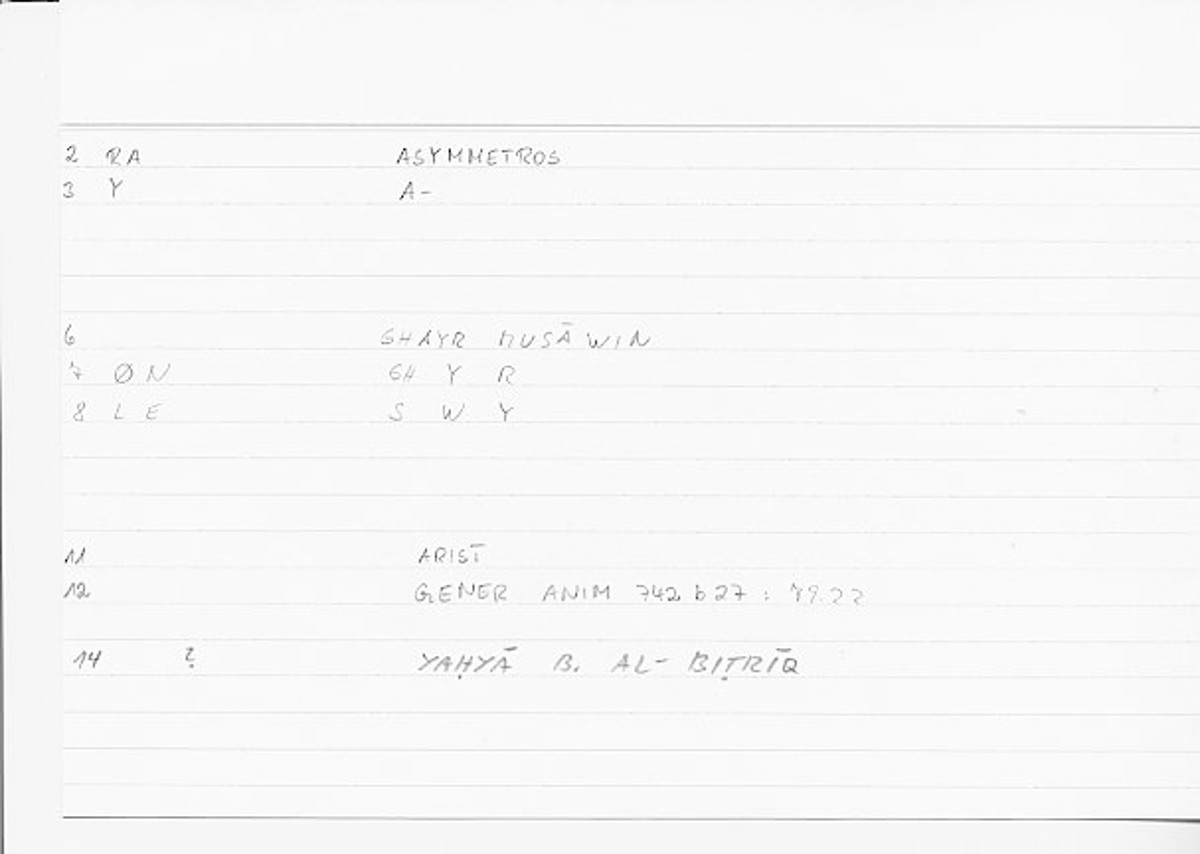 2 RA ASYMMETROS
3 Y A-
6 GHAYR MUSĀWIN
7 ØN GH Y R
8 LE S W Y
11 ARIST
12 GENER ANIM 742 b 27 : 79.22
14 ? YAḤYĀ B. AL-BIṬRĪQ